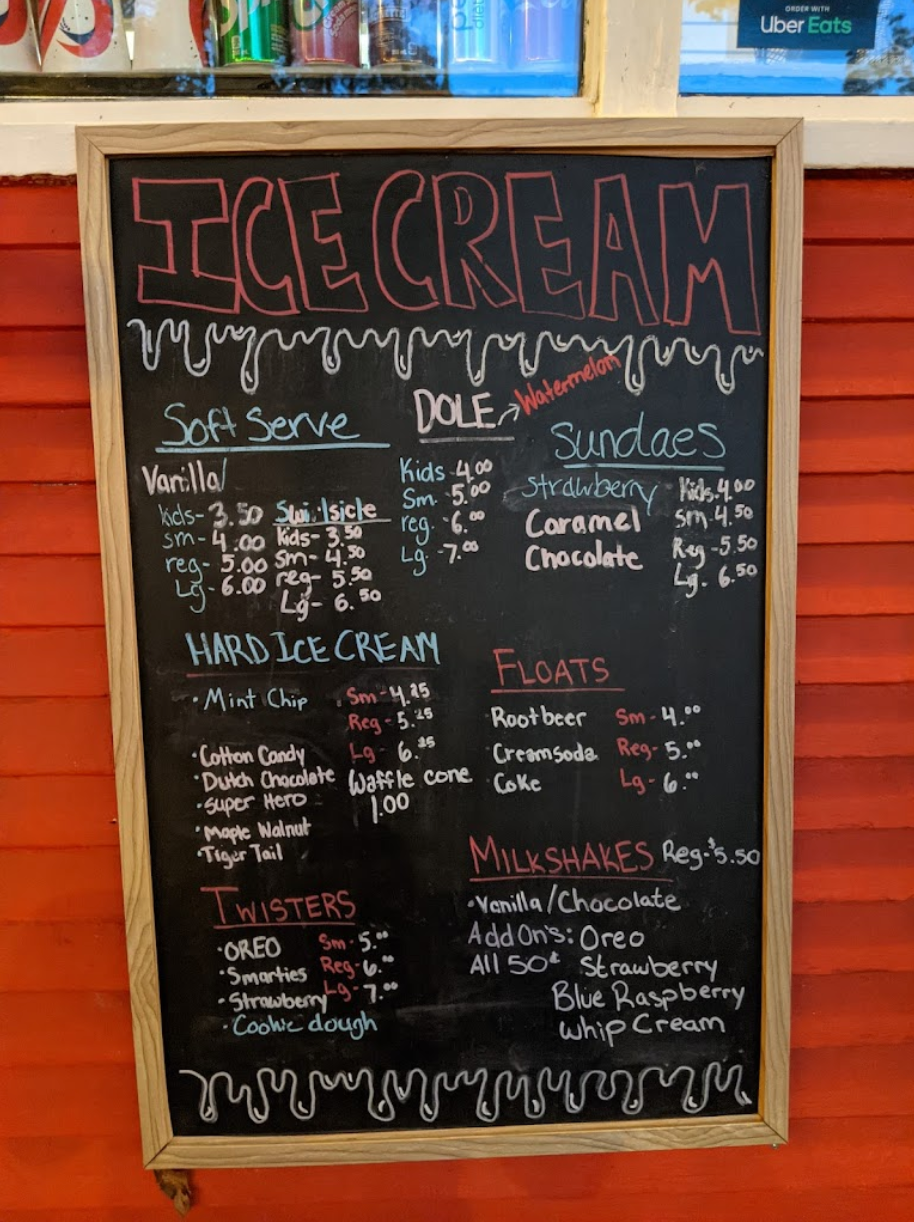 ORDER WITH
Uber Eats
ICE CREAM
Soft Serve
Vanilla
Kids- 3.50
sm- 4.00
reg- 5.00
Lg- 6.00
Kids- 3.50
Sm- 4.50
reg- 5.50
Lg- 6.50
DOLE → Watermelon
Kids - 4.00
Sm. - 5.00
reg. - 6.00
Lg. - 7.00
Sundaes
Strawberry Kids. 4.00
Caramel Sm - 4.50
Chocolate Reg - 5.50
Lg. 6.50
HARD ICE CREAM
• Mint Chip Sm - 4.25
Reg - 5.25
• Cotton Candy Lg - 6.25
• Dutch Chocolate Waffle cone
• Super Hero 1.00
• Maple Walnut
• Tiger Tail
FLOATS
Rootbeer Sm - 4.00
Creamsoda Reg- 5.00
Coke Lg - 6.00
TWISTERS
• OREO Sm - 5.00
• Smarties Reg - 6.00
• Strawberry Lg - 7.00
• Cookie dough
MILKSHAKES Reg-$5.50
• Vanilla/Chocolate
Add On's: Oreo
All 50¢ Strawberry
Blue Raspberry
Whip Cream